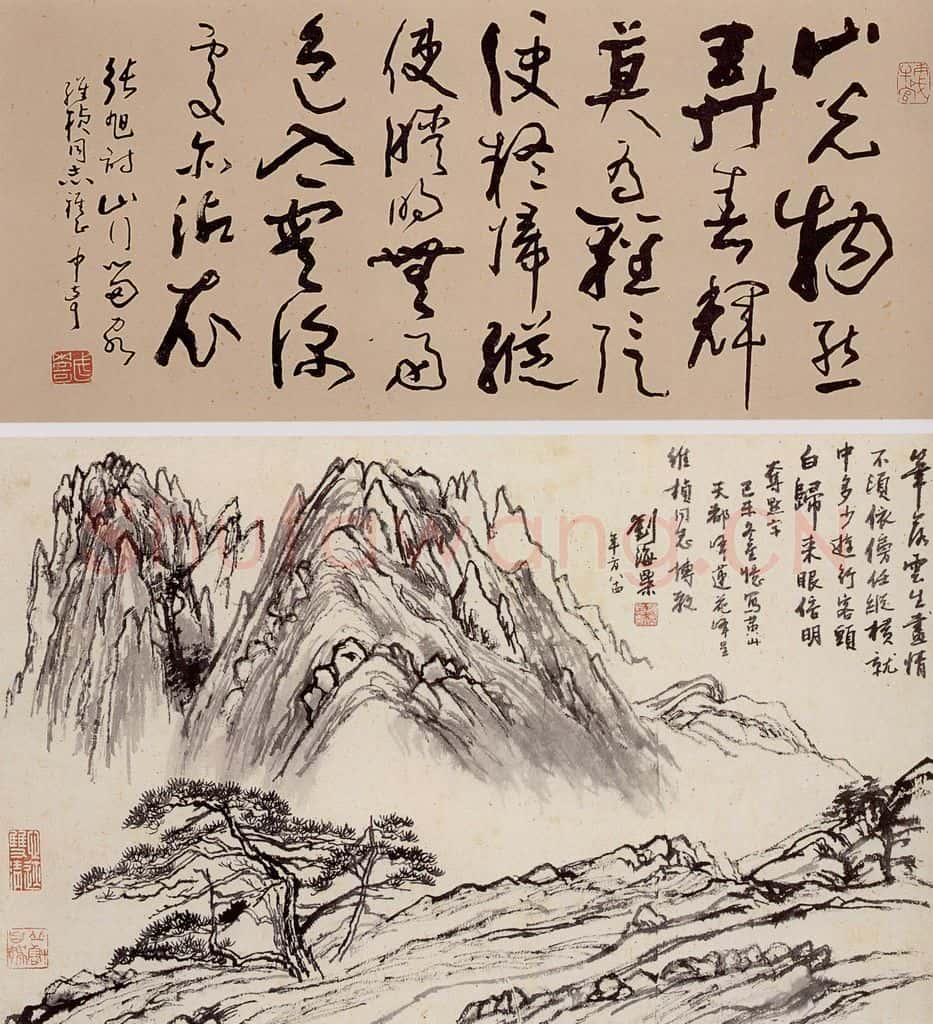 山光物態
弄春輝
莫为輕阴
便擬歸縱
使晴明無雨
色入雲深
處亦沾衣
張旭詩山行留客
維楨同志雅正 中奇
筆落雲生畫情
不須依傍任縱橫就
中多少遊行客頭
白歸來眼倍明
奪點字
己未冬重憶寫黃山
天都峰蓮花峰呈
維楨同志博教
劉海粟
年方八四
Shufawang.CN